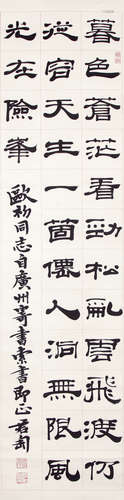 暮色蒼茫看勁松亂雲飛渡仍
從容天生一箇僊人洞無限風
光在險峯
歐初同志自廣州寄書索書即正 商承祚